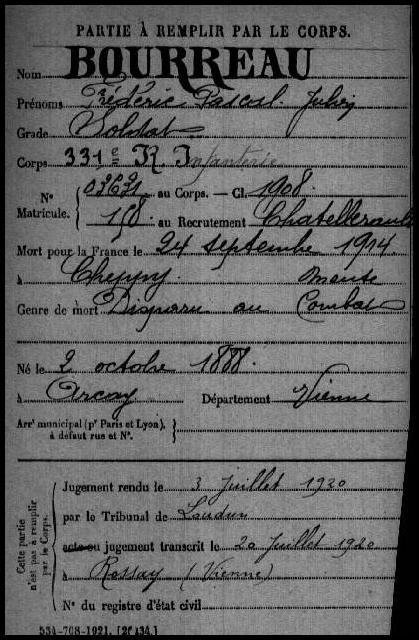 PARTIE À REMPLIR PAR LE CORPS.
Nom BOURREAU
Prénoms Frédéric Pascal Julien
Grade Soldat
Corps 331e R. Infanterie
N° Matricule. { 03631 au Corps. — Cl. 1908.
158 au Recrutement Chatellerault
Mort pour la France le 24 septembre 1914
à Cheppy. Meuse
Genre de mort Disparu au Combat
Né le 2 octobre 1888.
à Arcay Département Vienne
Arrt municipal (pr Paris et Lyon), à défaut rue et N°. }
Cette partie n'est pas à remplir par le Corps.
Jugement rendu le 3 Juillet 1920
par le Tribunal de Loudun
acte ou jugement transcrit le 20 Juillet 1920
à Rossay (Vienne)
N° du registre d'état civil
534-708-1921. [26434.]